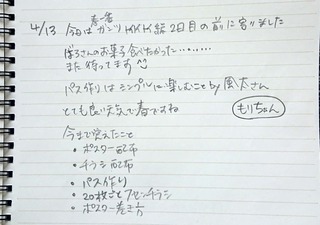 春一番
4/13 今日はガンツ KKK談 2日目の前に寄りました
ぼろさんのお菓子食べたかった………
また待ってます
パス作りはシンプルに楽しむこと by 風太さん
とても良い天気で春ですね
もりちゃん
今まで覚えたこと
・ポスター配布
・チラシ配布
・パス作り
・20枚ごとアセンチラシ
・ポスター巻き方